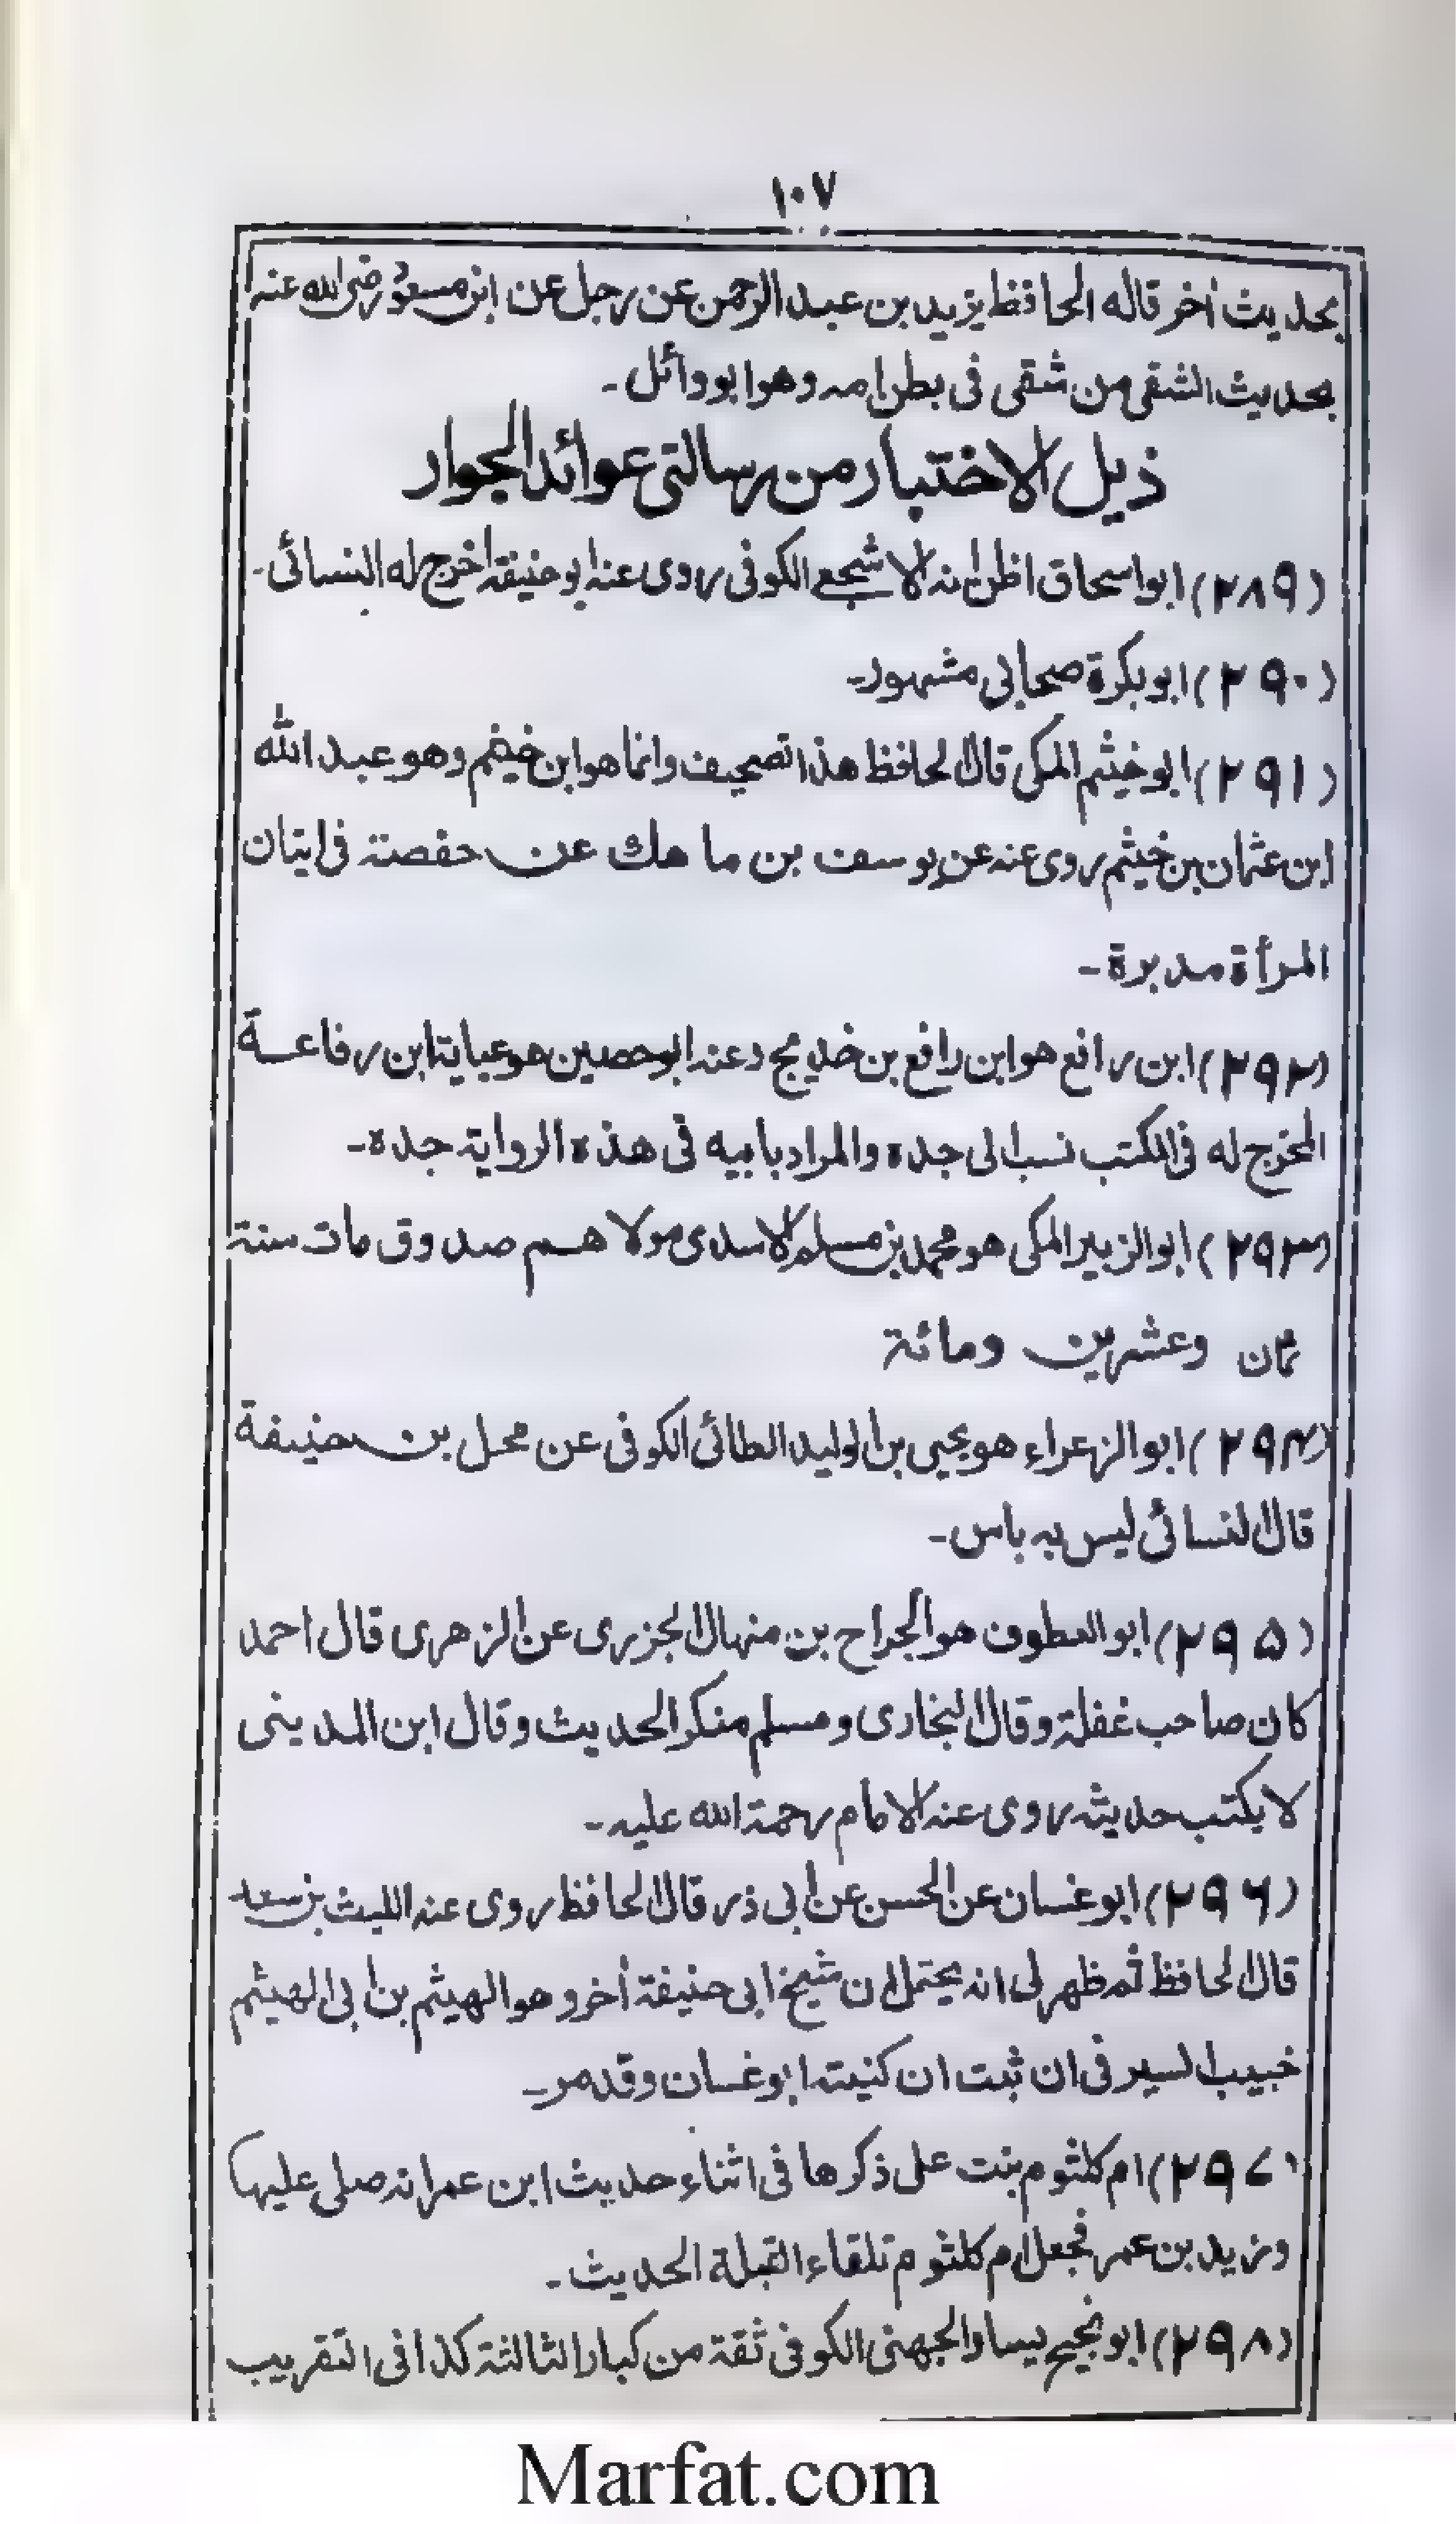 ١٠٧
بحديث أخر قاله الحافظ يزيد بن عبد الرحمن عن رجل عن ابن مسعود رضى الله عنه
بحديث الشقى من شقى فى بطن امه وهو ابو وائل۔
ذيل الاختبار من رسالتى عوائد الجوار
(٢٨٩) ابو اسحاق اظن انه الاشجعى الكوفى روى عنه ابو حنيفة اخرج له النسائى۔
(٢٩٠) ابو بكرة صحابى مشهور۔
(٢٩١) ابو خيثم المكى قال الحافظ هذا تصحيف وانما هو ابن خيثم وهو عبد الله
ابن عثمان بن خيثم روى عنه عن يوسف بن ماهك عن حفصة فى ايتان
المرأة مدبرة۔
(٢٩٢) ابن رافع هو ابن رافع بن خديج وعنه ابو حصين هو عباية ابن رفاعة
المخرج له فى الكتب نسب الى جده والمراد بابيه فى هذه الرواية جده۔
(٢٩٣) ابو الزبير المكى هو محمد بن مسلم الاسدى مولاهم صدوق مات سنة
ثمان وعشرين ومائة
(٢٩٤) ابو الزعراء هو يحيى بن الوليد الطائى الكوفى عن محل بن حنيفة
قال النسائى ليس به باس۔
(٢٩٥) ابو العطوف هو الجراح بن منهال الجزرى عن الزهرى قال احمد
كان صاحب غفلة وقال البخارى ومسلم منكر الحديث وقال ابن المدينى
لا يكتب حديثه روى عنه الامام رحمة الله عليه۔
(٢٩٦) ابو غسان عن الحسن عن ابى ذر قال الحافظ روى عنه الليث بن سعد
قال الحافظ ثم ظهر لى انه يحتمل ان شيخ ابى حنيفة أخر وهو الهيثم بن ابى الهيثم
خبيب السيرفى ان ثبت ان كنيته ابو غسان وقد مر۔
(٢٩٧) ام كلثوم بنت على ذكرها فى اثناء حديث ابن عمر انه صلى عليها
وزيد بن عمر فجعل ام كلثوم تلقاء القبلة الحديث۔
(٢٩٨) ابو نجيح يسار الجهنى الكوفى ثقة من كبار الثالثة كذا فى التقريب
Marfat.com